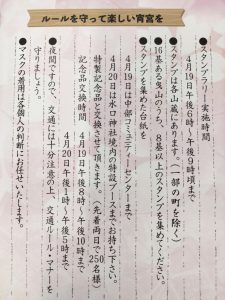 ルールを守って楽しい宵宮を
●スタンプラリー実施時間
4月19日午後6時〜午後9時頃まで
●スタンプは各山蔵にあります。(一部の町を除く)
●16基ある曳山のうち、8基以上のスタンプを集めてください。
●スタンプを集めた台紙を
4月19日は中部コミュニティーセンターまで
4月20日は水口神社境内の特設ブースまでお持ち下さい。
特製記念品と交換させて頂きます。(先着両日で250名様)
記念品交換時間 4月19日午後8時〜午後10時まで
4月20日午後1時〜午後5時まで
●夜間ですので、交通には十分注意の上、交通ルール・マナーを
守りましょう。
●マスクの着用は各個人の判断にお任せいたします。